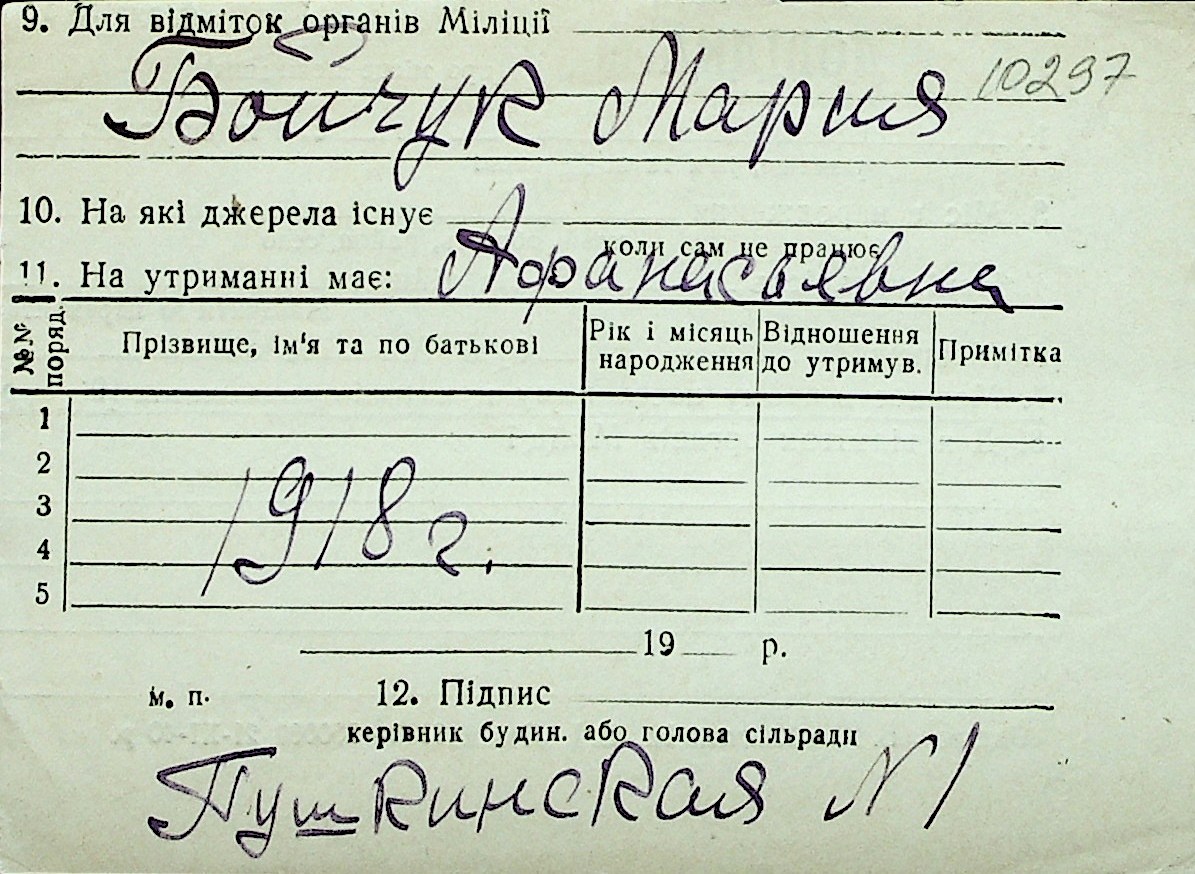 9. Для відміток органів Міліції
Бойчук Мария 10297
10. На які джерела існує
коли сам не працює
11. На утриманні має: Афанасьевна
№№ поряд. Прізвище, ім'я та по батькові Рік і місяць народження Відношення до утримув. Примітка
1
2
1918 г.
3
4
5
19 р.
м. п. 12. Підпис
керівник будин. або голова сільради
Пушкинская N 1